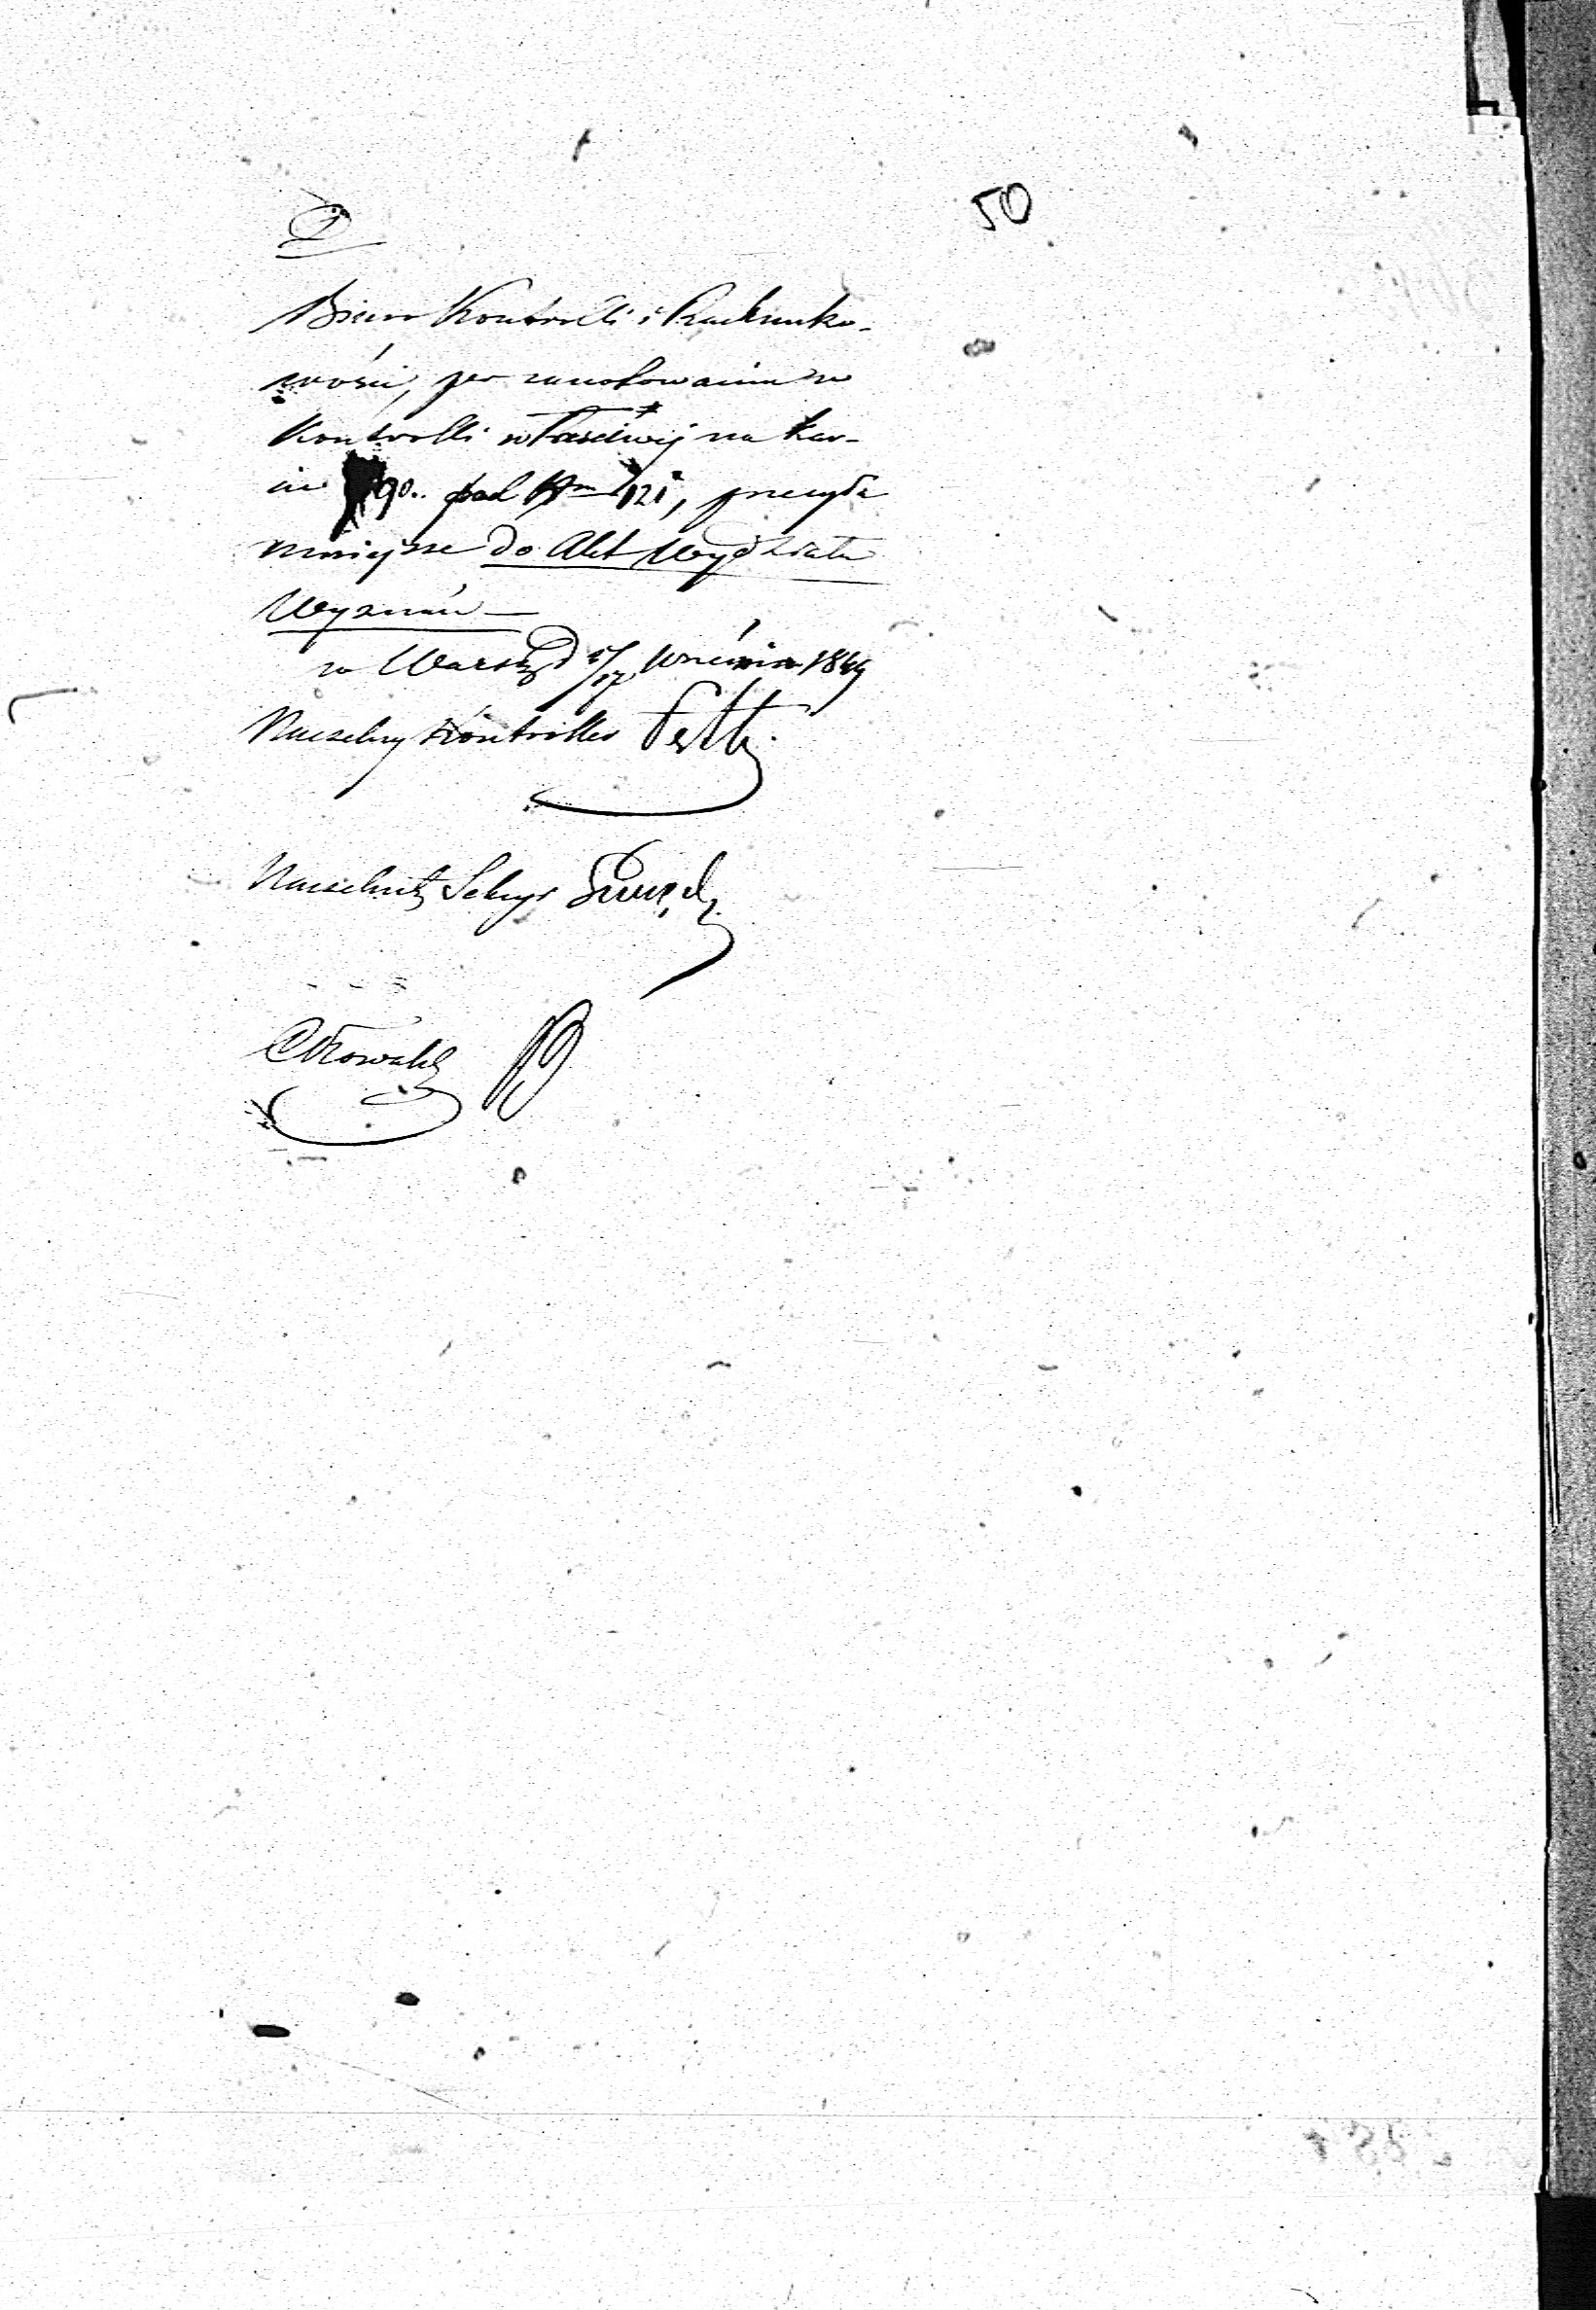 50
Biuro Kontrolli i Rachunko-
wości, po zanotowaniu w
Kontrolli właściwej na kar-
cie 90. pod Nrm 121, przesyła
niniejsze do Akt Wydziału
Wyznań —
w Warsz. d 5/17 Września 1849
Naczelny Kontroller
Naczelnik Sekcyi